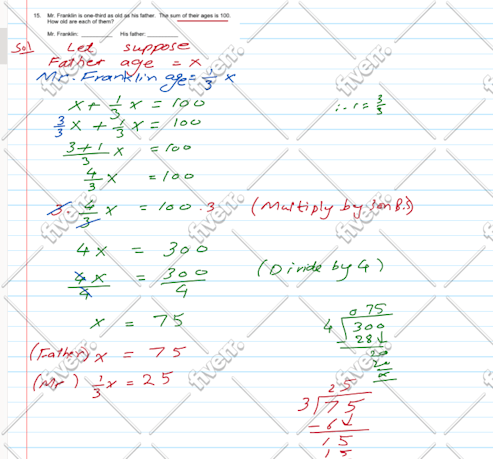 15. Mr. Franklin is one-third as old as his father. The sum of their ages is 100.
How old are each of them?
Mr. Franklin: ________ His father: ________
Sol Let suppose
Father age = x
Mr. Franklin age = 1/3 x
x + 1/3 x = 100 ∴ 1 = 3/3
3/3 x + 1/3 x = 100
3+1/3 x = 100
4/3 x = 100
3 · 4/3 x = 100 · 3 (Multiply by 3 on B.S)
4x = 300
4x/4 = 300/4 (Divide by 4)
x = 75
(Father) x = 75
(Mr) 1/3 x = 25
075
4 300
- 28↓
20
20
x
25
3 75
- 6↓
15
15
fiverr.
fiverr.
fiverr.
fiverr.
fiverr.
fiverr.
fiverr.
fiverr.
fiverr.